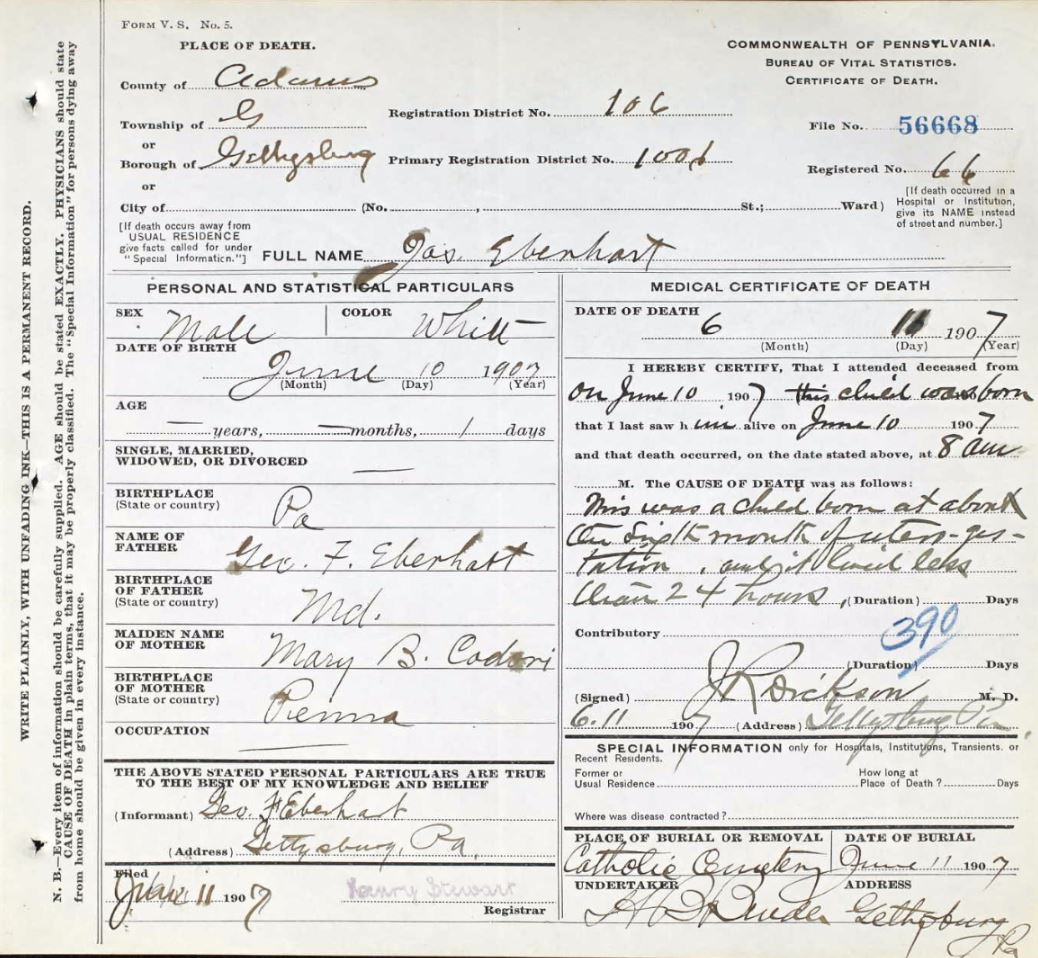 FORM V. S. No. 5.
PLACE OF DEATH.
County of Adams
Township of G
or
Borough of Gettysburg
or
City of (No. , St.; Ward)
Registration District No. 106
Primary Registration District No. 1006
COMMONWEALTH OF PENNSYLVANIA.
BUREAU OF VITAL STATISTICS.
CERTIFICATE OF DEATH.
File No. 56668
Registered No. 66
[If death occurred in a
Hospital or Institution,
give its NAME instead
of street and number.]
[If death occurs away from
USUAL RESIDENCE
give facts called for under
"Special Information."]
FULL NAME Jas. Eberhart
PERSONAL AND STATISTICAL PARTICULARS
SEX Male COLOR White
DATE OF BIRTH
June 10 1907
(Month) (Day) (Year)
AGE
— years, — months, 1 days
SINGLE, MARRIED,
WIDOWED, OR DIVORCED —
BIRTHPLACE
(State or country) Pa
NAME OF
FATHER Geo. F. Eberhart
BIRTHPLACE
OF FATHER
(State or country) Md.
MAIDEN NAME
OF MOTHER Mary B. Codori
BIRTHPLACE
OF MOTHER
(State or country) Penna
OCCUPATION —
THE ABOVE STATED PERSONAL PARTICULARS ARE TRUE
TO THE BEST OF MY KNOWLEDGE AND BELIEF
(Informant) Geo. F Eberhart
(Address) Gettysburg, Pa.
Filed
June 11 1907 Henry Stewart
Registrar
MEDICAL CERTIFICATE OF DEATH
DATE OF DEATH
6 11 1907
(Month) (Day) (Year)
I HEREBY CERTIFY, That I attended deceased from
on June 10 1907 this child was born
that I last saw h im alive on June 10 1907
and that death occurred, on the date stated above, at 8 am
M. The CAUSE OF DEATH was as follows:
This was a child born at about
the sixth month of utero-ges-
tation, and it lived less
than 24 hours, (Duration) Days
Contributory 390
(Duration) Days
(Signed) J R Dickson M. D.
6.11 1907 (Address) Gettysburg Pa.
SPECIAL INFORMATION only for Hospitals, Institutions, Transients, or
Recent Residents.
Former or
Usual Residence
How long at
Place of Death? Days
Where was disease contracted?
PLACE OF BURIAL OR REMOVAL
Catholic Cemetery
DATE OF BURIAL
June 11 1907
UNDERTAKER
H B Bender
ADDRESS
Gettysburg
Pa
WRITE PLAINLY, WITH UNFADING INK—THIS IS A PERMANENT RECORD.
N. B.—Every item of information should be carefully supplied. AGE should be stated EXACTLY. PHYSICIANS should state
CAUSE OF DEATH in plain terms, that it may be properly classified. The "Special Information" for persons dying away
from home should be given in every instance.